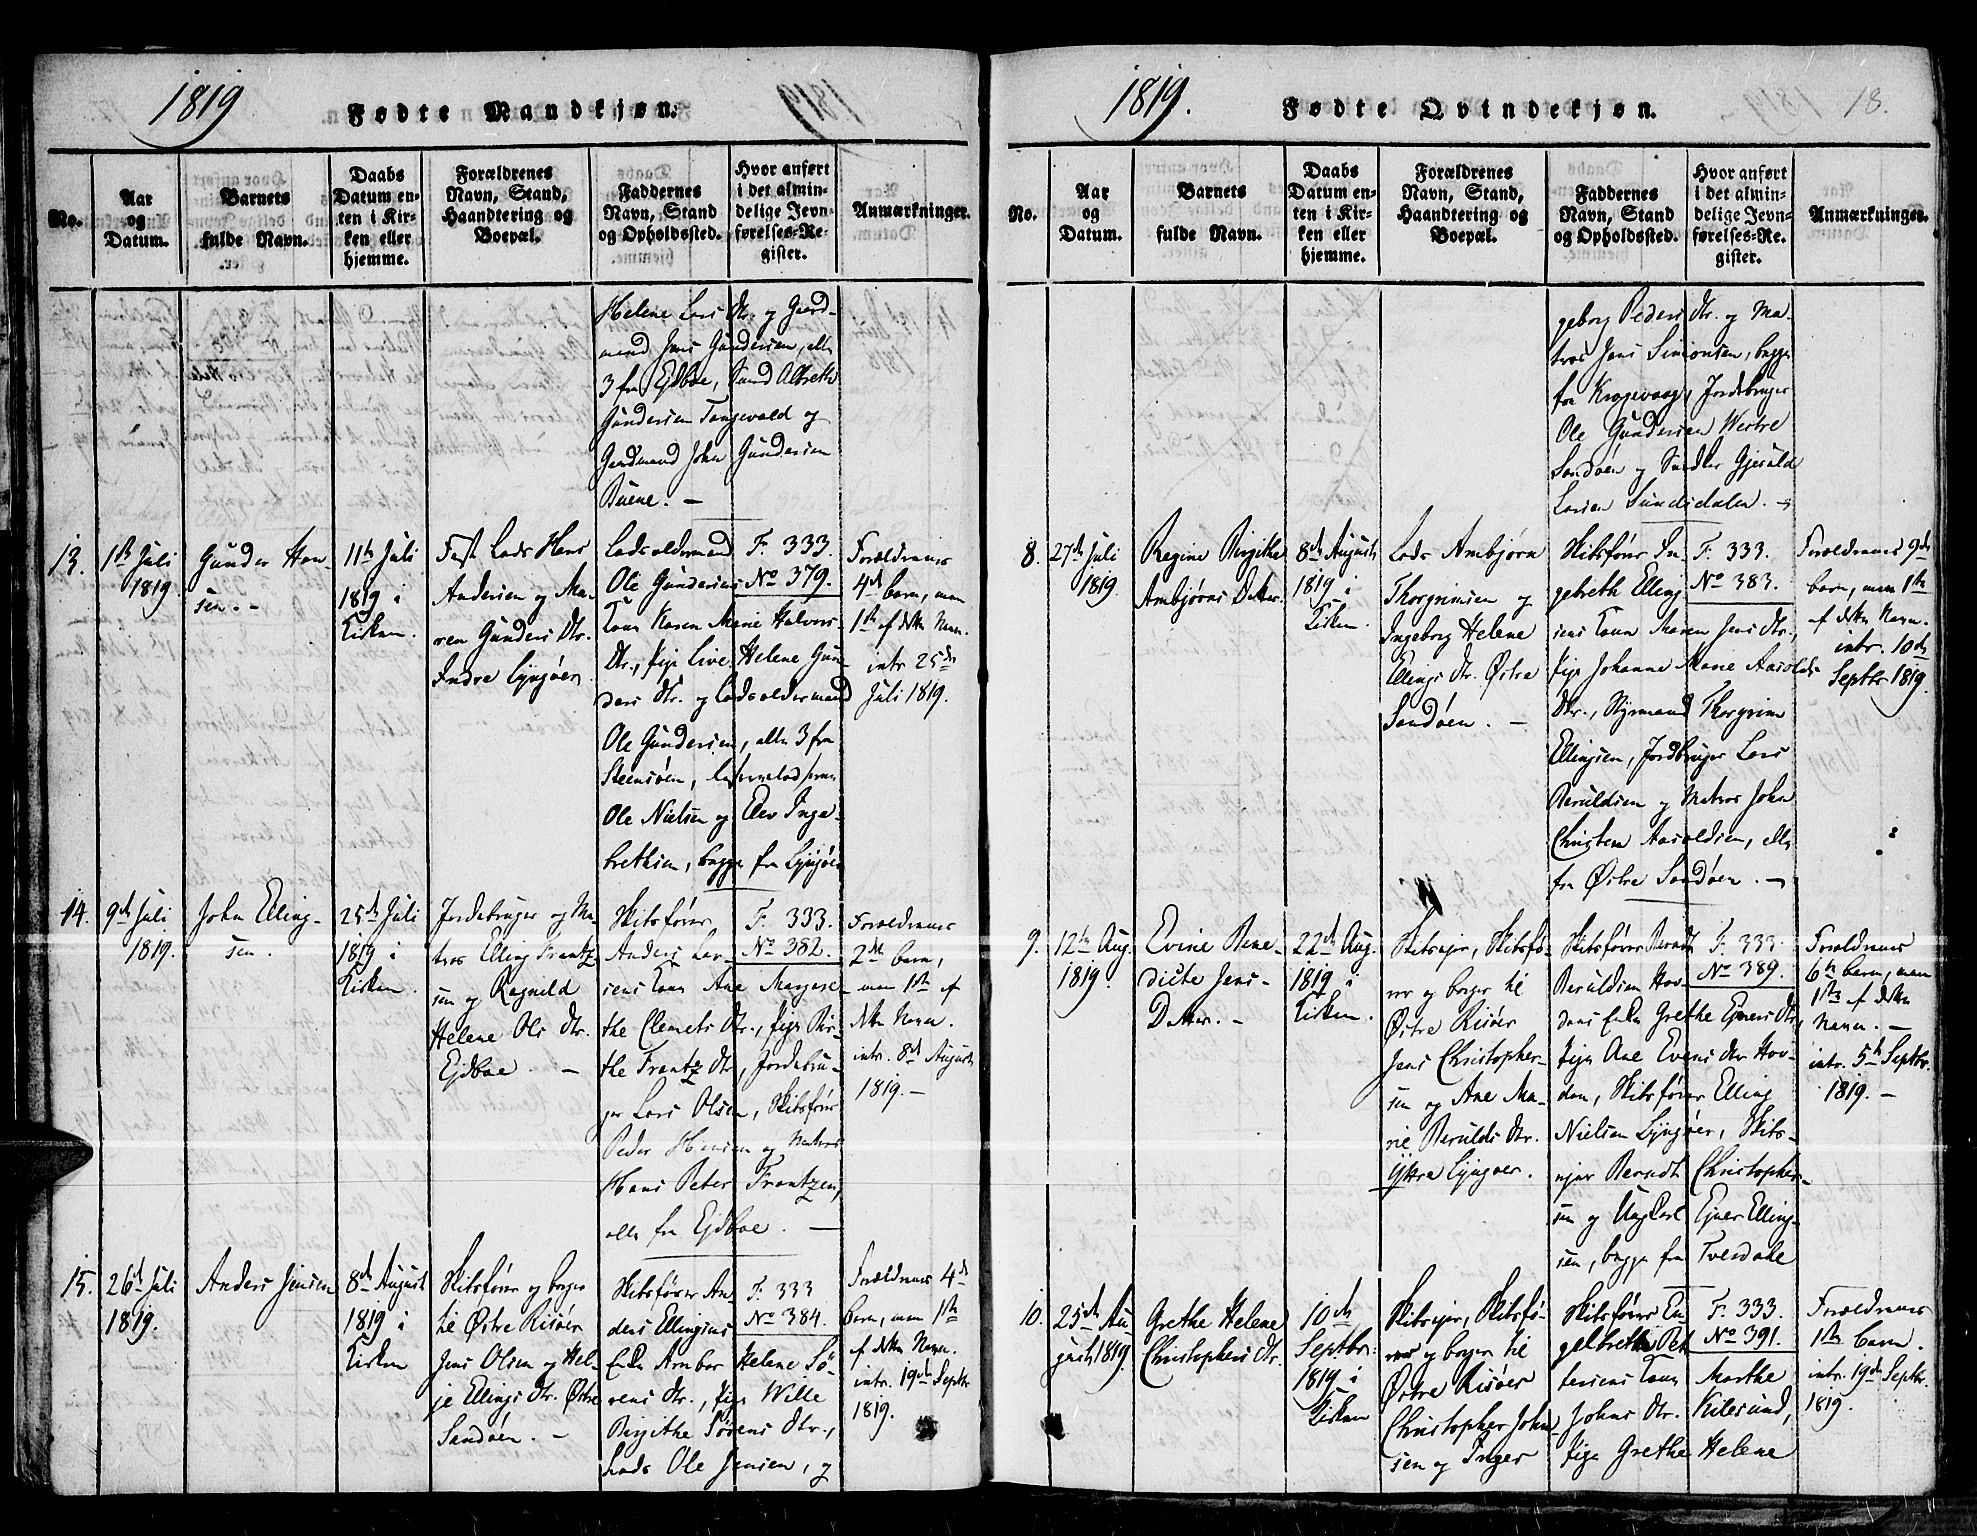 1819
Fødte Mandkjøn.
No.
Aar og Datum.
Barnets fulde Navn.
Daabs Datum enten i Kirken eller hjemme.
Forældrenes Navn, Stand, Haandtering og Boepæl.
Faddernes Navn, Stand og Opholdssted.
Hvor anført i det almindelige Jevnførelses-Register.
Anmærkninger.
Helene Lars Dtr. og Gaard-
mand Jens Gundersen, alle
3 fra Ejdboe, Svend Albreth
Gundersen Tangevald og
Gaardmand John Gundersen
Buene. —
13.
1ste Juli
1819.
Gunder Han-
sen. -
11te Juli
1819 i
Kirken.
Fast Lods Hans
Andersen og Ma-
ren Gunders Dtr.
Indre Lyngøer.
Lodsoldermand
Ole Gundersens
Kone Karen Marie Halvors
Dtr., Pige Live Helene Gun-
ders Dtr. og Lodsoldermand
Ole Gundersen, alle 3 fra
Steensøen,
Ole Nielsen og Elev Inge-
brethsen, begge fra Lyngøer
F. 333.
No 379.
Forældrenes
4de barn, men
1ste af dette Navn.
intr. 25de
Juli 1819.
14.
9de Juli
1819.
John Elling-
sen.
25de Juli
1819 i
Kirken.
Jordebruger og Ma-
tros Elling Frantz-
sen og Ragnild
Helene Ols Dtr.
Ejdboe. —
Skibsfører
Anders Lar-
sens Kone Ane Margre-
the Clemets Dtr., Pige Bir-
the Frantz Dtr., Jordebru-
ger Lars Olsen, Skibsfører
Peder Hansen og Matros
Hans Peter Frantzen,
alle fra Ejdboe. —
F. 333.
No 382.
Forældrenes
2det barn,
men 1ste af
dette Navn.
intr. 8de Augusti
1819. —
15.
26de Juli
1819.
Anders Jensen
8de Augusti
1819 i
Kirken
Skibsfører og borger
til Østre Risøer
Jens Olsen og Hel-
je Ellings Dtr. Østre
Sandøen. —
Skibsfører An-
ders Ellingsens
Enke Amber Helene Sö-
rens Dtr., Pige Wille
Birgithe Sørens Dtr.,
Lods Ole Jensen, og
F. 333
No 384.
Forældrenes 4de
barn, men 1ste
af dette Navn.
intr. 19de Septbr.
1819.
1819.
Fødte Qvindekjøn.
18.
No.
Aar og Datum.
Barnets fulde Navn.
Daabs Datum enten i Kirken eller hjemme.
Forældrenes Navn, Stand, Haandtering og Boepæl.
Faddernes Navn, Stand og Opholdssted.
Hvor anført i det almindelige Jevnførelses-Register.
Anmærkninger.
geborg Peders Dtr. og Ma-
tros Jens Simonsen, begge
fra Krogevaag, Jordebruger
Ole Gundersen Westre
Sandøen og Snedker Gjerald
Larsen Sundsdalen. —
8.
27de Juli
1819.
Regine Birgithe
Ambjørns Datter.
8de Augusti
1819 i
Kirken.
Lods Ambjørn
Thorgrimsen og
Ingeborg Helene
Ellings Dtr. Østre
Sandøen. —
Skibsfører In-
gebreth Elling-
sens Kone Maren Jens Dtr.,
Pige Johanne Marie Aasolds
Dtr., Styrmand Thorgrim
Ellingsen, Jordbruger Lars
Beruldsen og Matros John
Christen Aasoldsen, alle
fra Østre Sandøen. —
F. 333.
No 383.
Forældrenes 9de
barn, men 1ste
af dette Navn.
intr. 10de
Septbr 1819.
9.
12te Aug.
1819.
Evine Bene-
dicte Jens-
Datter. —
22de Aug.
1819 i
Kirken.
Skibsejer, Skibsfø-
rer og borger til
Østre Risöer
Jens Christopher-
sen og Ane Ma-
rie Berulds Dtr.
Yttre Lyngøer.
Skibsfører Berndt
Beruldsen Hov-
dens Enke Grethe Ejners Dtr.,
Pige Ane Evens Dtr Hov-
den, Skibsfører Elling
Nielsen Lyngøer, Skibs-
ejer Berndt Christopher-
sen og Ung Karl Ejner Elling-
sen, begge fra Tverdahe
F. 333.
No 389.
Forældrenes
6te barn, men
1ste af dette
Navn. —
intr. 5te Septbr.
1819. —
10.
25de Au-
gusti 1819.
Grethe Helene
Christophers Dtr.
10de
Septbr.
1819 i
Kirken
Skibsejer, Skibsfø-
rer og borger til
Østre Risøer
Christopher John-
sen og Inger
Skibsfører En-
gelbreth Pet-
tersens Kone Marthe
Johns Dtr. Kilesund,
Pige Grethe Helene
F. 333.
No 391.
Forældrenes
1ste barn.
intr. 19de Septbr.
1819.